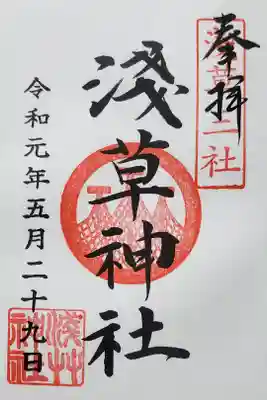 奉拝
浅草神社
淺草神社
令和元年五月二十九日
淺草神社